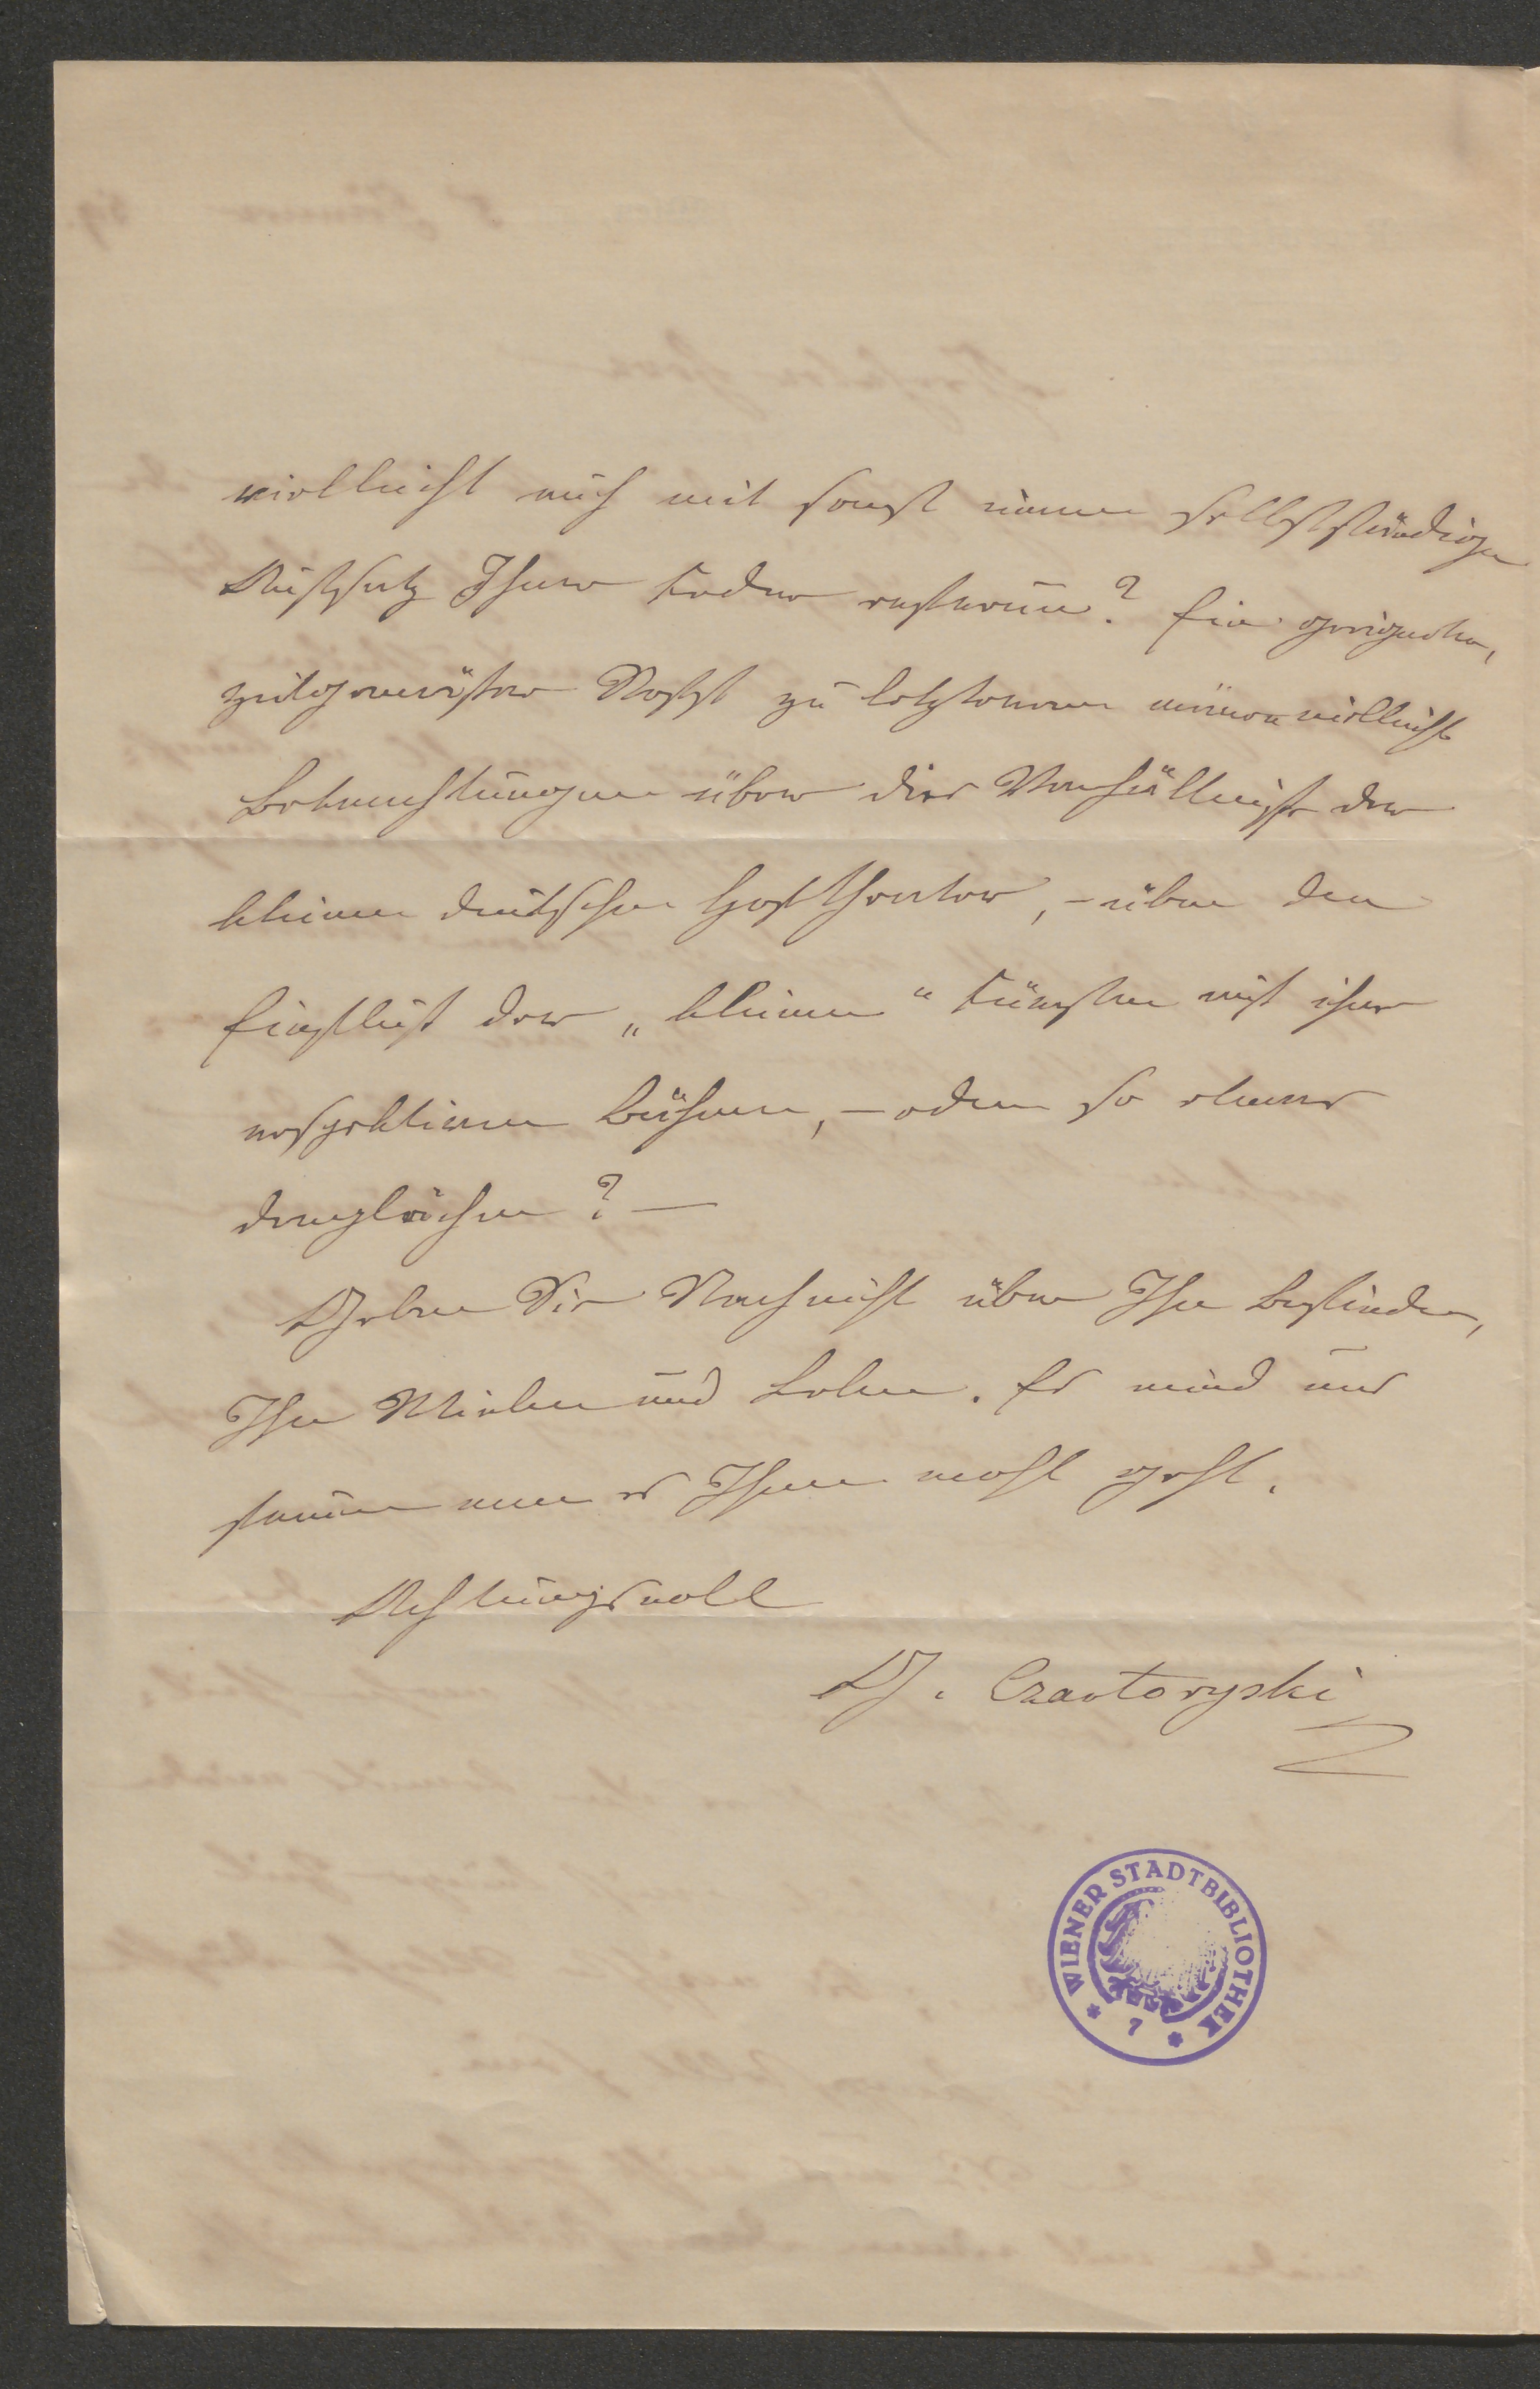 vielleicht auch mit sonst einem selbstständigen
Aufsatz Ihrer Feder erfreuen? Ein geeigneter,
zeitgemäßer Stoff zu letzterem wären vielleicht
Betrachtungen über die Verhältnisse der
kleinen deutschen Hoftheater, – über den
Einfluß der „kleinen“ Fürsten auf ihre
respektiven Bühnen, – oder so etwas
dergleichen? –
Geben Sie Nachricht über Ihr Befinden,
Ihr Wirken und Leben. Es wird uns
freuen wenn es Ihnen wohl geht.
Achtungsvoll
Czartoryski
WIENER STADTBIBLIOTHEK
7